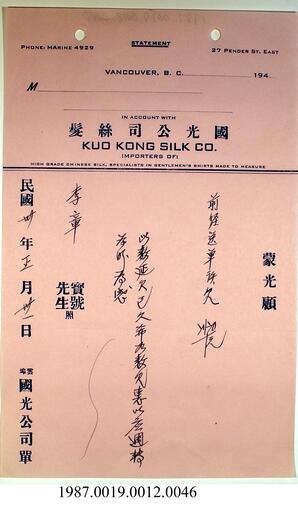 STATEMENT
PHONE: MARINE 4929
27 PENDER ST. EAST
VANCOUVER, B. C. 194
M
IN ACCOUNT WITH
國光公司絲髮
KUO KONG SILK CO.
IMPORTERS OF:
HIGH GRADE CHINESE SILK, SPECIALISTS IN GENTLEMEN'S SHIRTS MADE TO MEASURE
蒙光顧
前經送單
以數延欠已久希為數兄惠以
李章
寶號
先生
照
民國卅年正月卅一日
雲埠 國光公司單
1987.0019.0012.0046